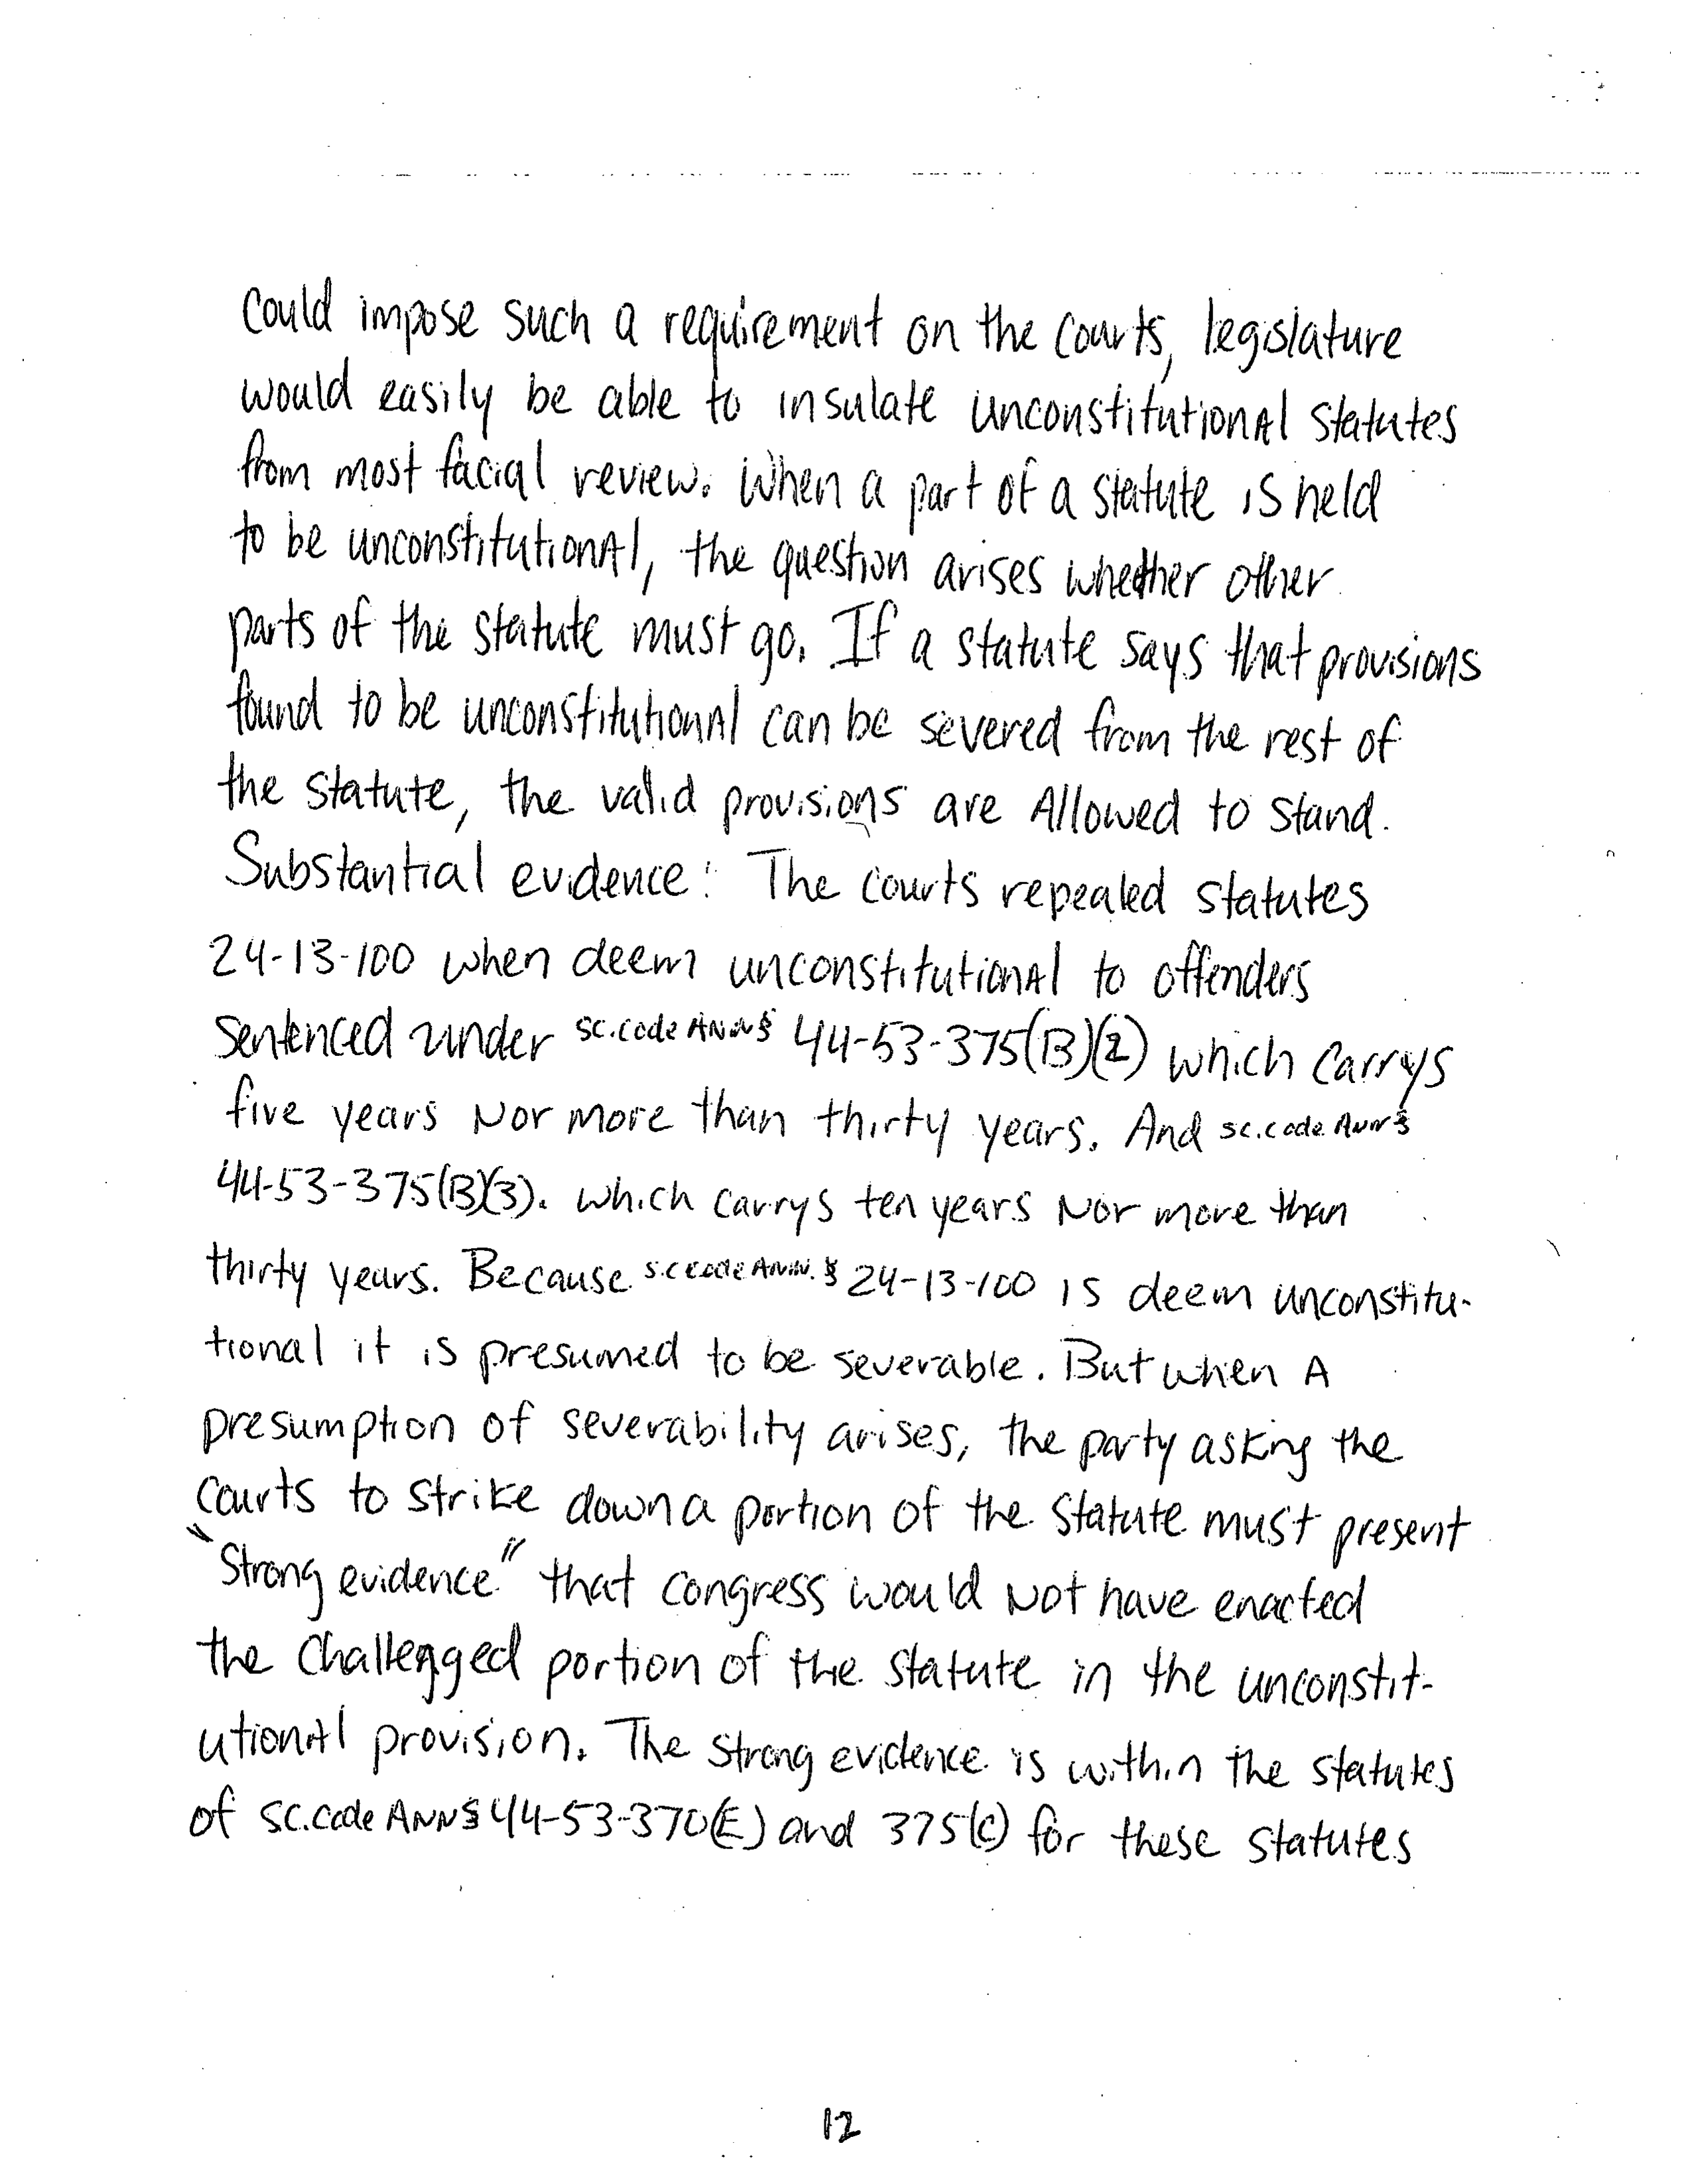 Could impose such a requirement on the courts, legislature
would easily be able to insulate unconstitutionAl statutes
from most facial review. When a part of a statute is held
to be unconstitutionAl, the question arises whether other
parts of the statute must go. If a statute says that provisions
found to be unconstitutionAl can be severed from the rest of
the statute, the valid provisions are Allowed to stand.
Substantial evidence: The courts repealed statutes
24-13-100 when deem unconstitutionAl to offenders
Sentenced under SC.Code ANN § 44-53-375(B)(2) which carrys
five years Nor more than thirty years. And SC.Code Ann §
44-53-375(B)(3). which carrys ten years Nor more than
thirty years. Because S.C Code ANN. § 24-13-100 is deem unconstitu-
tional it is presumed to be severable. But when A
presumption of severability arises, the party asking the
Courts to strike down a portion of the statute must present
"Strong evidence" that congress would Not have enacted
the challengged portion of the statute in the unconstit-
utionAl provision. The strong evidence is within the statutes
of SC.Code ANN § 44-53-370(E) and 375(C) for these statutes
12